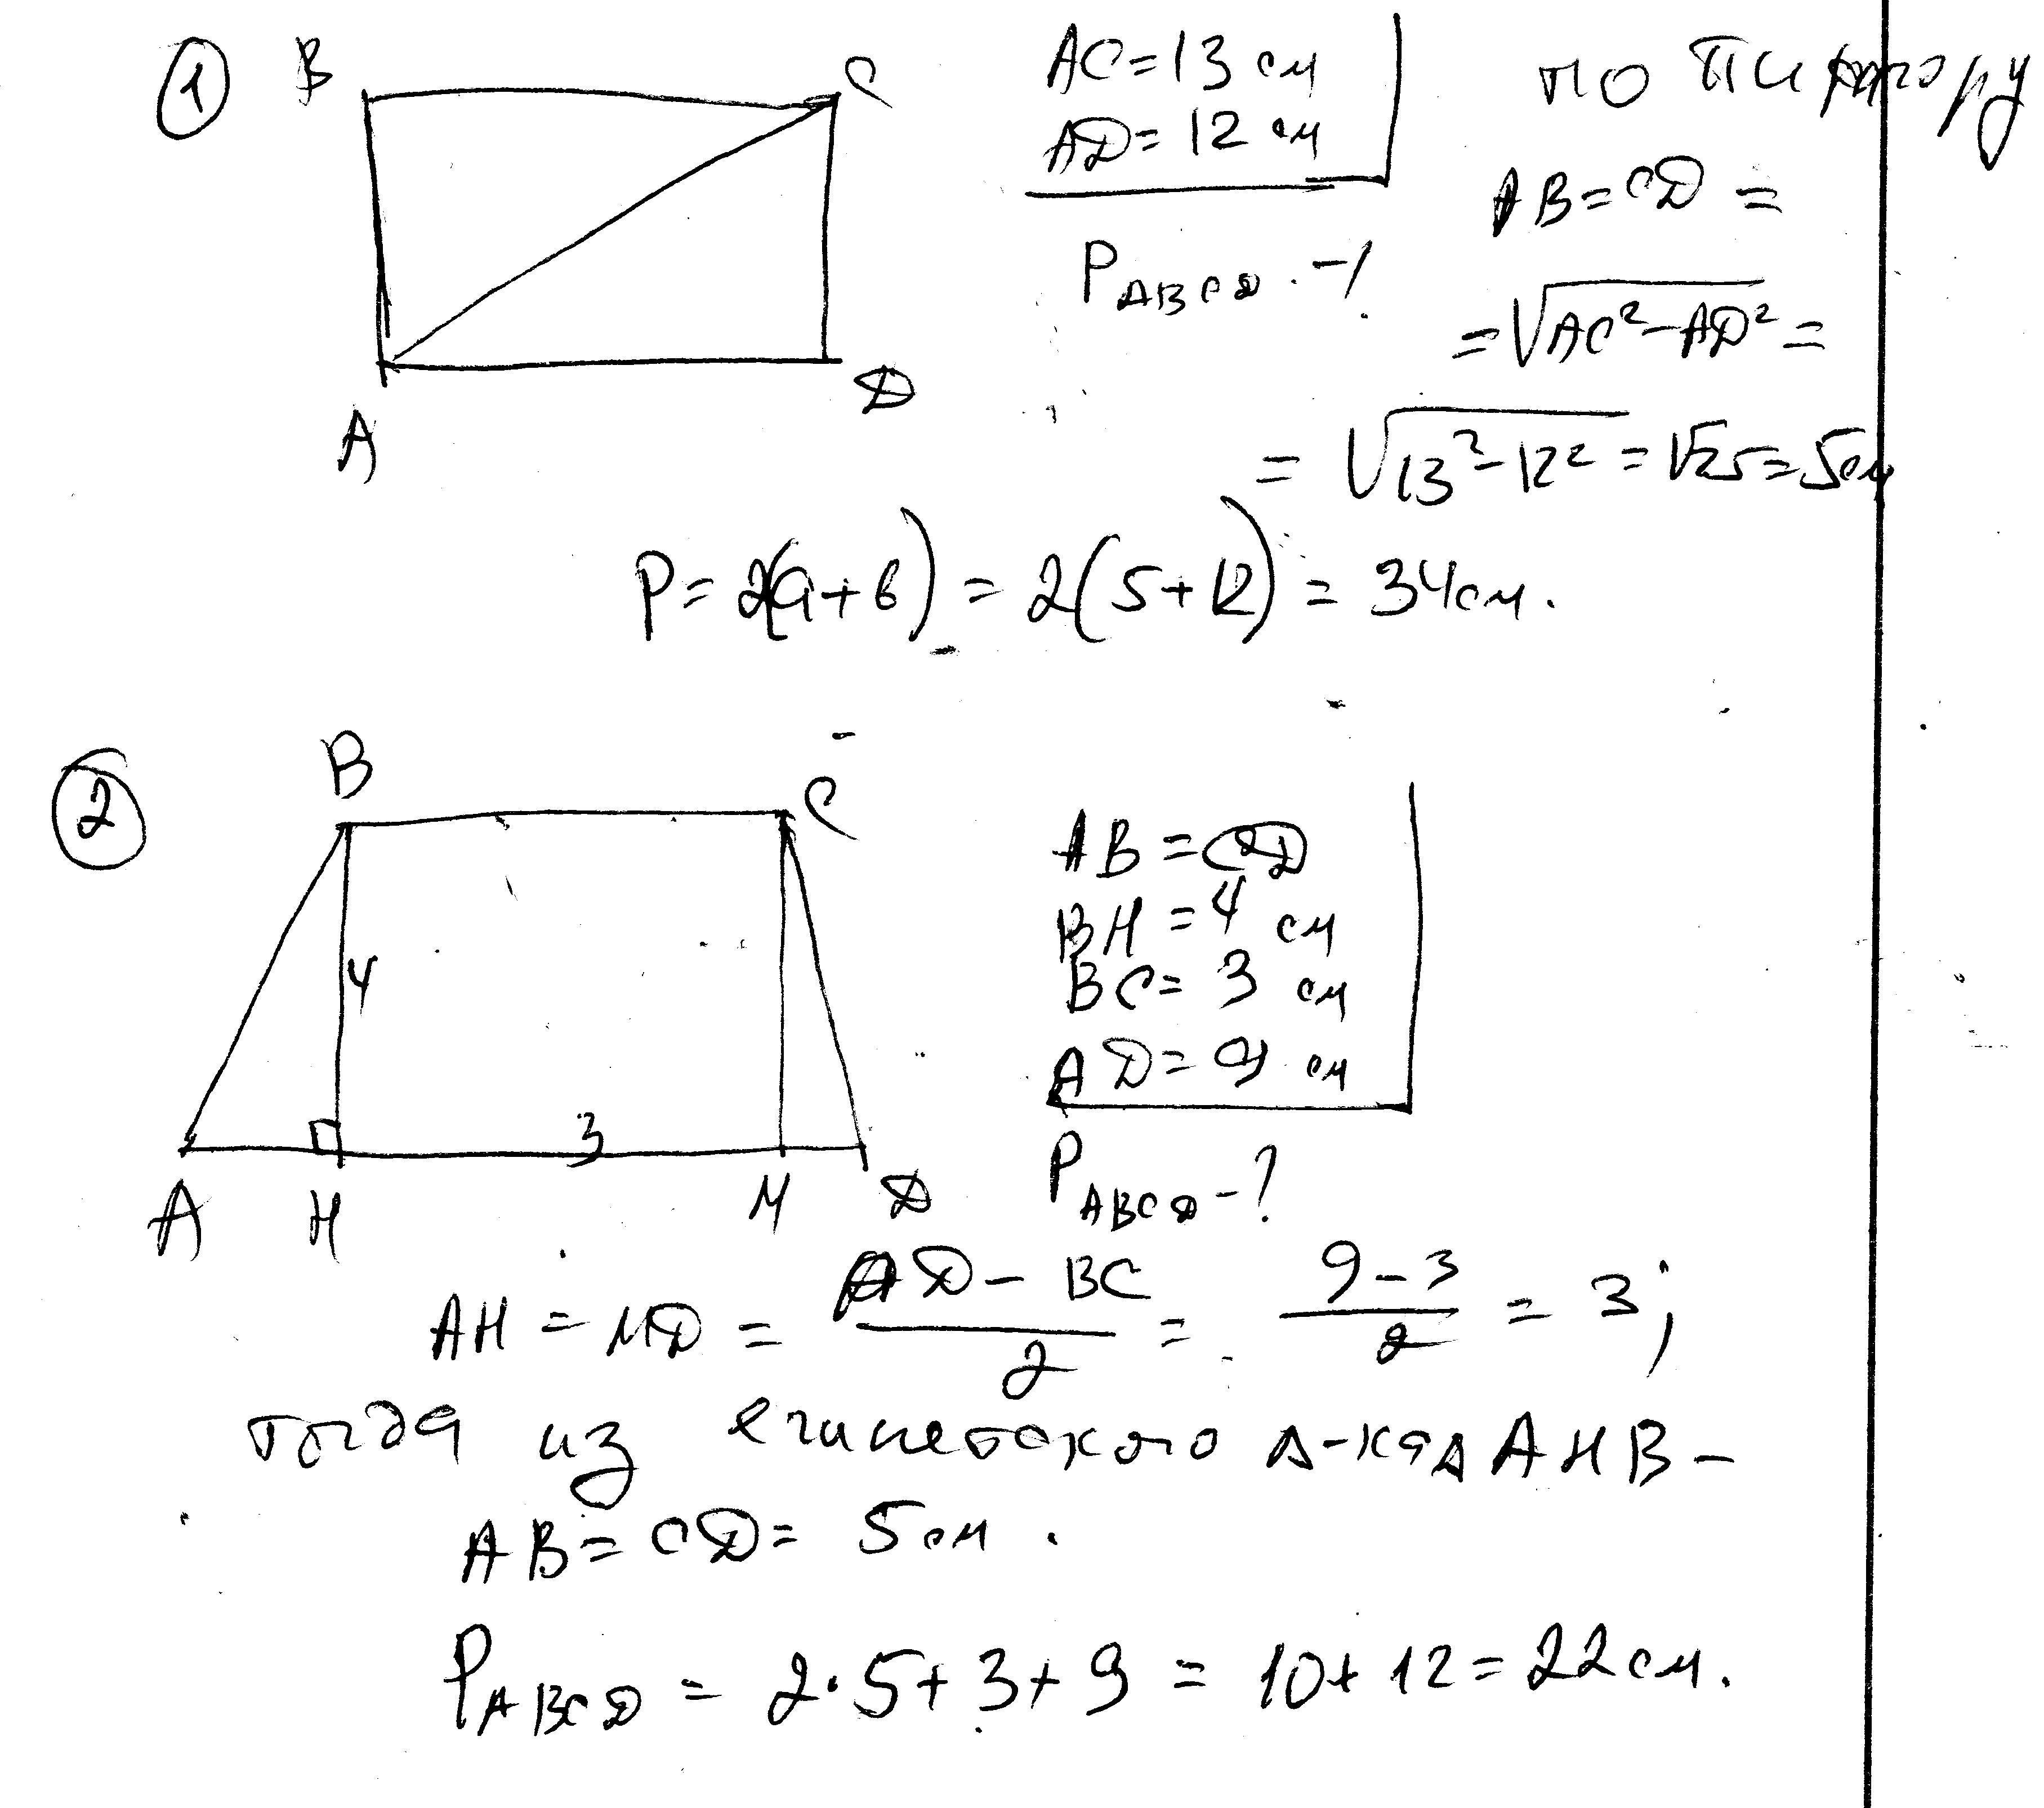 1
B C
A D
AC = 13 см
AD = 12 см
P ABCD - ?
по Пифагору
AB = CD =
= √AC² - AD² =
= √13² - 12² = √25 = 5 см
P = 2(a + b) = 2(5 + 12) = 34 см.
2
B C
4
3
A H M D
AB = CD
BH = 4 см
BC = 3 см
AD = 9 см
P ABCD - ?
AH = MD = AD - BC / 2 = 9 - 3 / 2 = 3;
тогда из египетского Δ-ка Δ AHB -
AB = CD = 5 см.
P ABCD = 2·5 + 3 + 9 = 10 + 12 = 22 см.